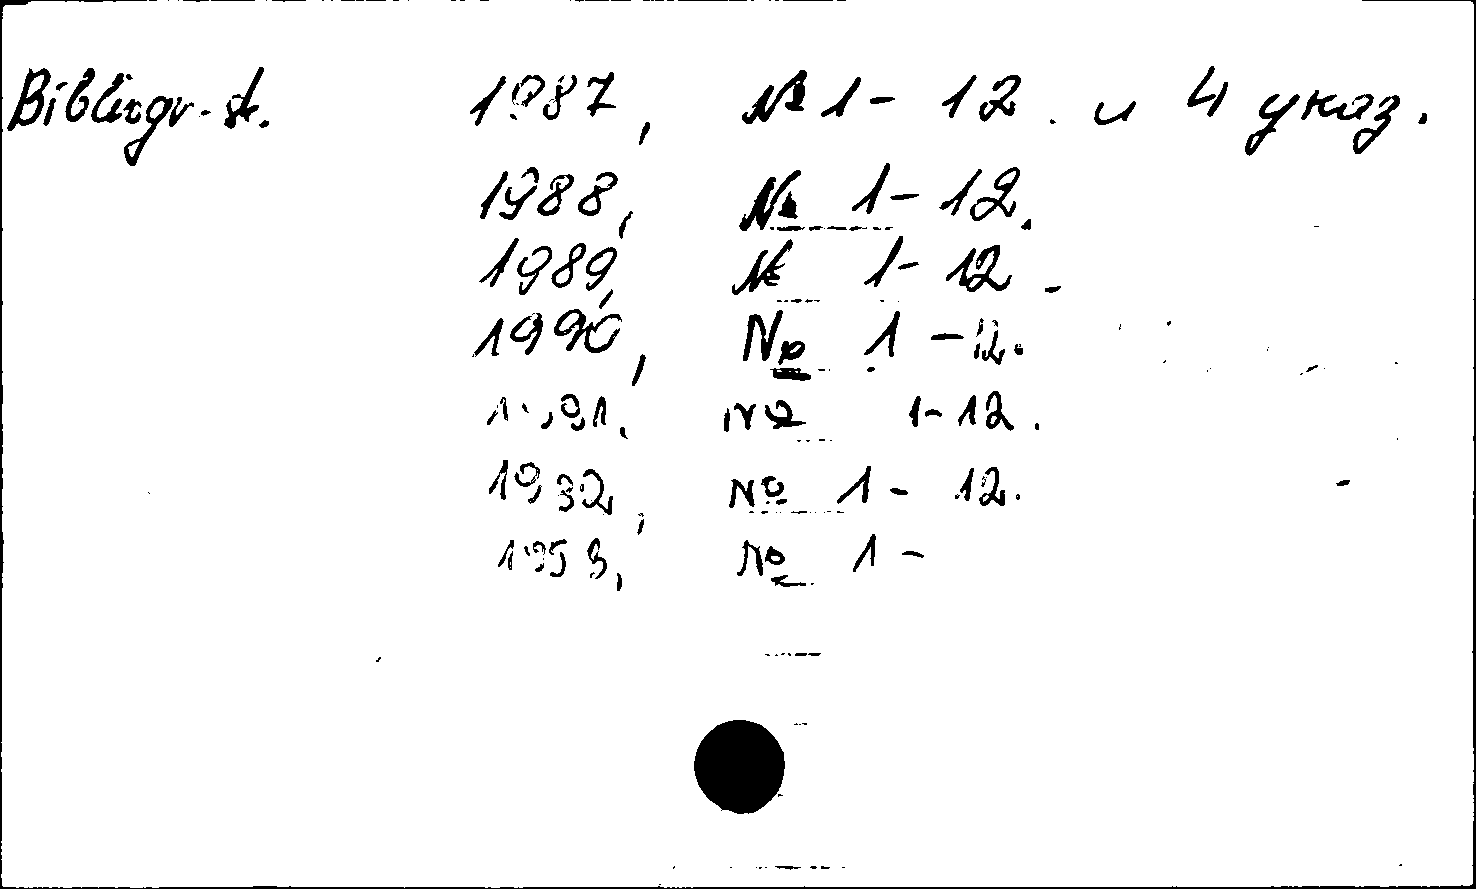 Bibliogr. st. 1987, № 1 - 12. и 4 указ.
1988, № 1 - 12.
1989, № 1 - 12.
1990, № 1 - 12.
1991, № 1 - 12.
1992, № 1 - 12.
1993, № 1 -